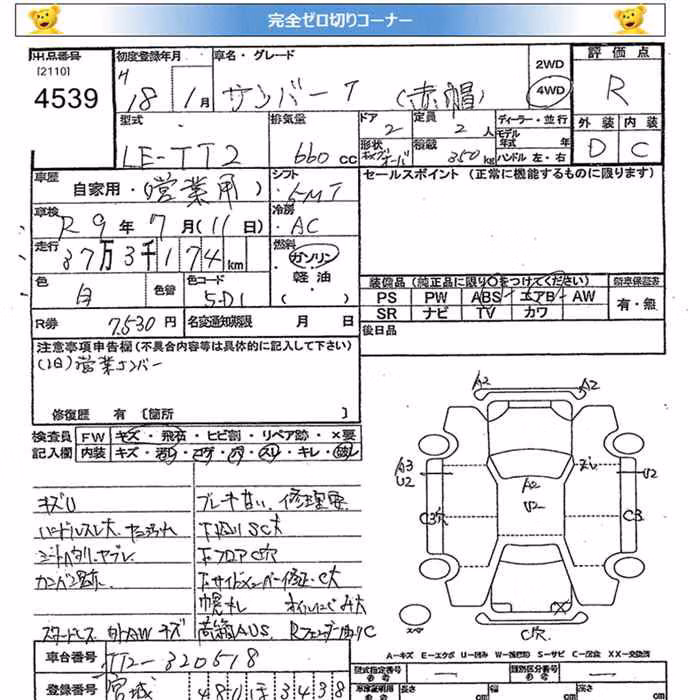 完全ゼロ切りコーナー
出品番号
[2110]
4539
初度登録年月
H 18 1月
車名・グレード
サンバー T (赤帽)
2WD
4WD
評価点
R
外装 内装
D C
型式
LE-TT2
排気量
660 cc
ドア
2
定員
2 人
形状
積載
350 kg
ディーラー・並行
モデル
年式 年
ハンドル 左・右
車歴
自家用・(営業用)
シフト
5MT
車検
R 9年 7月(11日)
冷房
AC
走行
37万3千174 km
燃料
ガソリン
軽油
( )
色
白
色替
色コード
5D1
R券 7,530円
名変通知期限 月 日
セールスポイント (正常に機能するものに限ります)
装備品(純正品に限り○をつけてください)
PS PW ABS エアB AW
SR ナビ TV カワ
新車保証書
有・無
後日品
注意事項申告欄(不具合内容等は具体的に記入して下さい)
(1日)営業ナンバー
修復歴 有 [箇所 ]
検査員
記入欄
FW キズ・飛石・ヒビ割・リペア跡・×要
内装 キズ・汚レ・コゲ・穴・スレ・キレ・破レ
キズU
ハンドルスレ大
カンバン跡
スタートレス 外AWキズ
ブレーキ甘い 修理要
下廻りSC大
下フロアC穴
下サイドメンバー修正C大
幌キレ
荷箱AUS
A2
A2
A3
U2
A2
U2
U2
C3穴
C3
C穴
スペア
A-キズ E-エクボ U-凹み W-補修跡 S-サビ C-腐食 XX-交換済
車台番号
TT2-320518
登録番号
宮城 480 ほ 3438
型式指定番号
類別区分番号
長さ cm
幅 cm
高さ cm